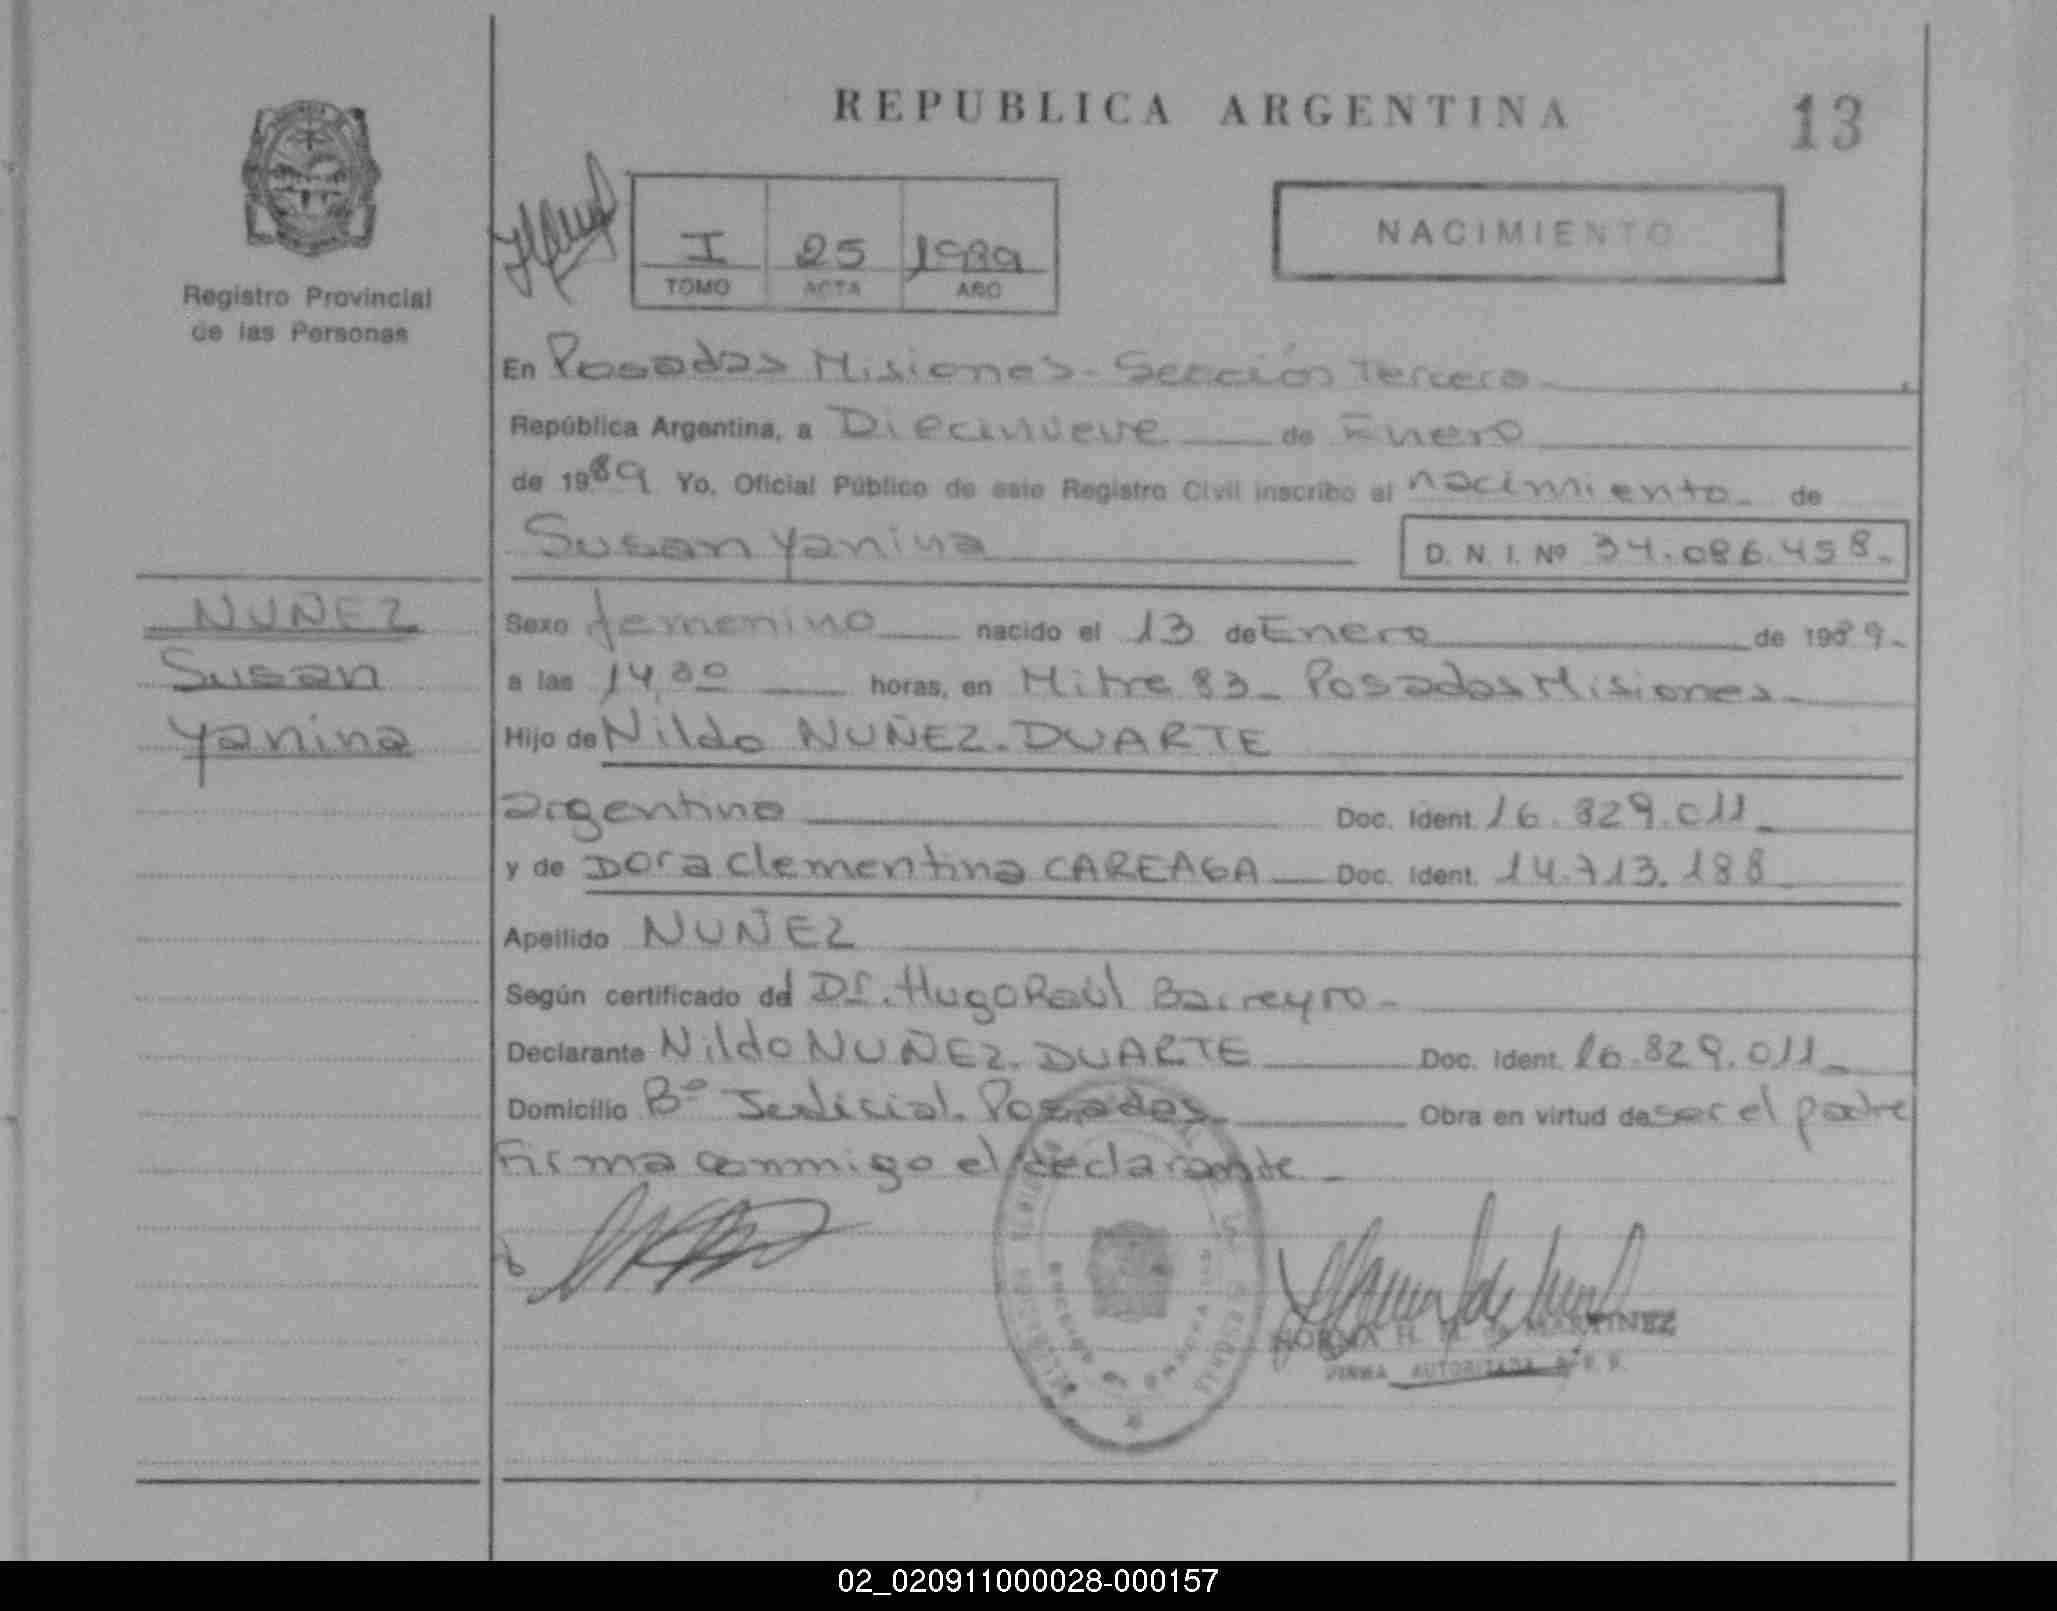 REPUBLICA ARGENTINA
13
Registro Provincial
de las Personas
I 25 1989
TOMO ACTA AÑO
NACIMIENTO
En Posadas Misiones - Sección Tercera
República Argentina, a Diecinueve de Enero
de 1989 Yo, Oficial Público de este Registro Civil inscribo el nacimiento de
Susan Yanina
D. N. I. Nº 34.086.458.
NUÑEZ
Susan
Yanina
Sexo femenino nacido el 13 de Enero de 1989.
a las horas, en Mitre 83 - Posadas Misiones
Hijo de Nildo NUÑEZ. DUARTE
argentino Doc. Ident. 16.829.011
y de Dora Clementina CAREAGA Doc. Ident. 14.713.188
Apellido NUÑEZ
Según certificado del Dr. Hugo Raúl Barreyro
Declarante Nildo NUÑEZ. DUARTE Doc. Ident. 16.829.011
Domicilio Bº Judicial. Posadas Obra en virtud de ser el padre
Firma conmigo el declarante
NORMA MARTINEZ
FIRMA AUTORIZADA
02_020911000028-000157